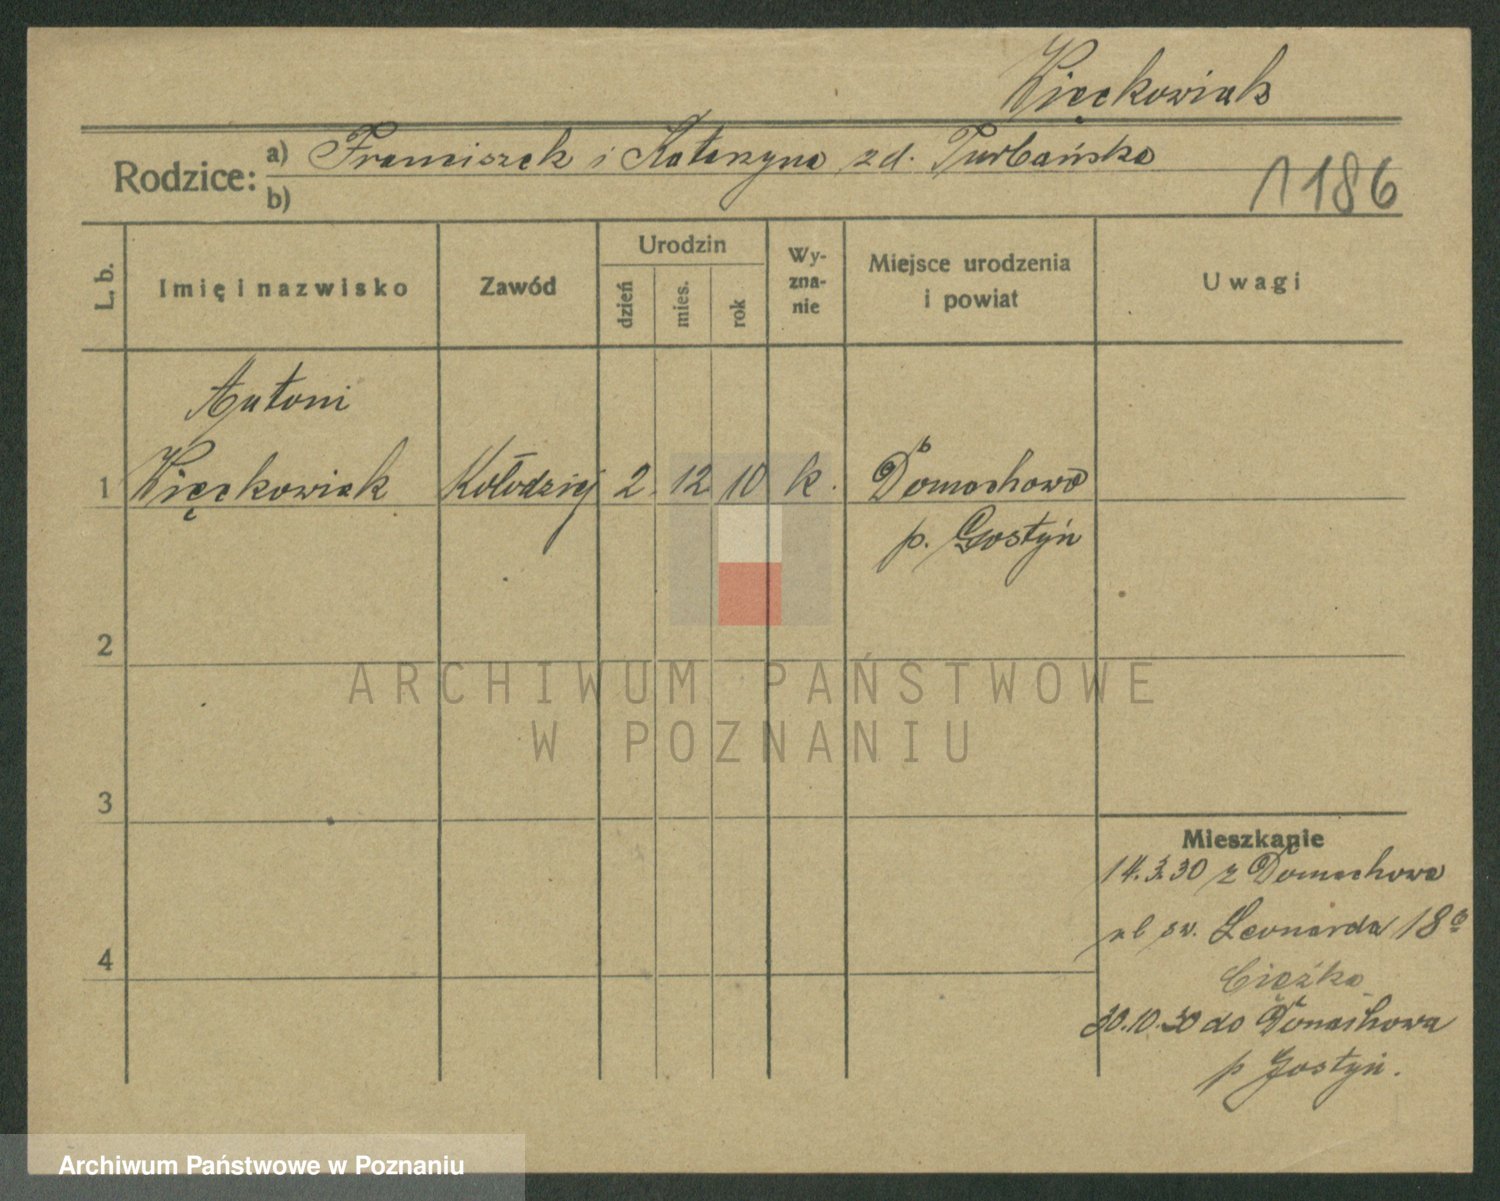 Więckowiak
Rodzice: a) Franciszek i Katarzyna zd. Turbańska
b)
1186
L. b.
Imię i nazwisko
Zawód
Urodzin
dzień
mies.
rok
Wy-
zna-
nie
Miejsce urodzenia
i powiat
Uwagi
Antoni
1 Więckowiak Kołodziej 2. 12 10 k. Domachowo
p. Gostyń
2
3
4
Mieszkanie
14.3.30 z Domachowa
ul św. Leonarda 18
Ciążka
30.10.30 do Domachowa
p Gostyń.
ARCHIWUM PAŃSTWOWE
W POZNANIU
Archiwum Państwowe w Poznaniu